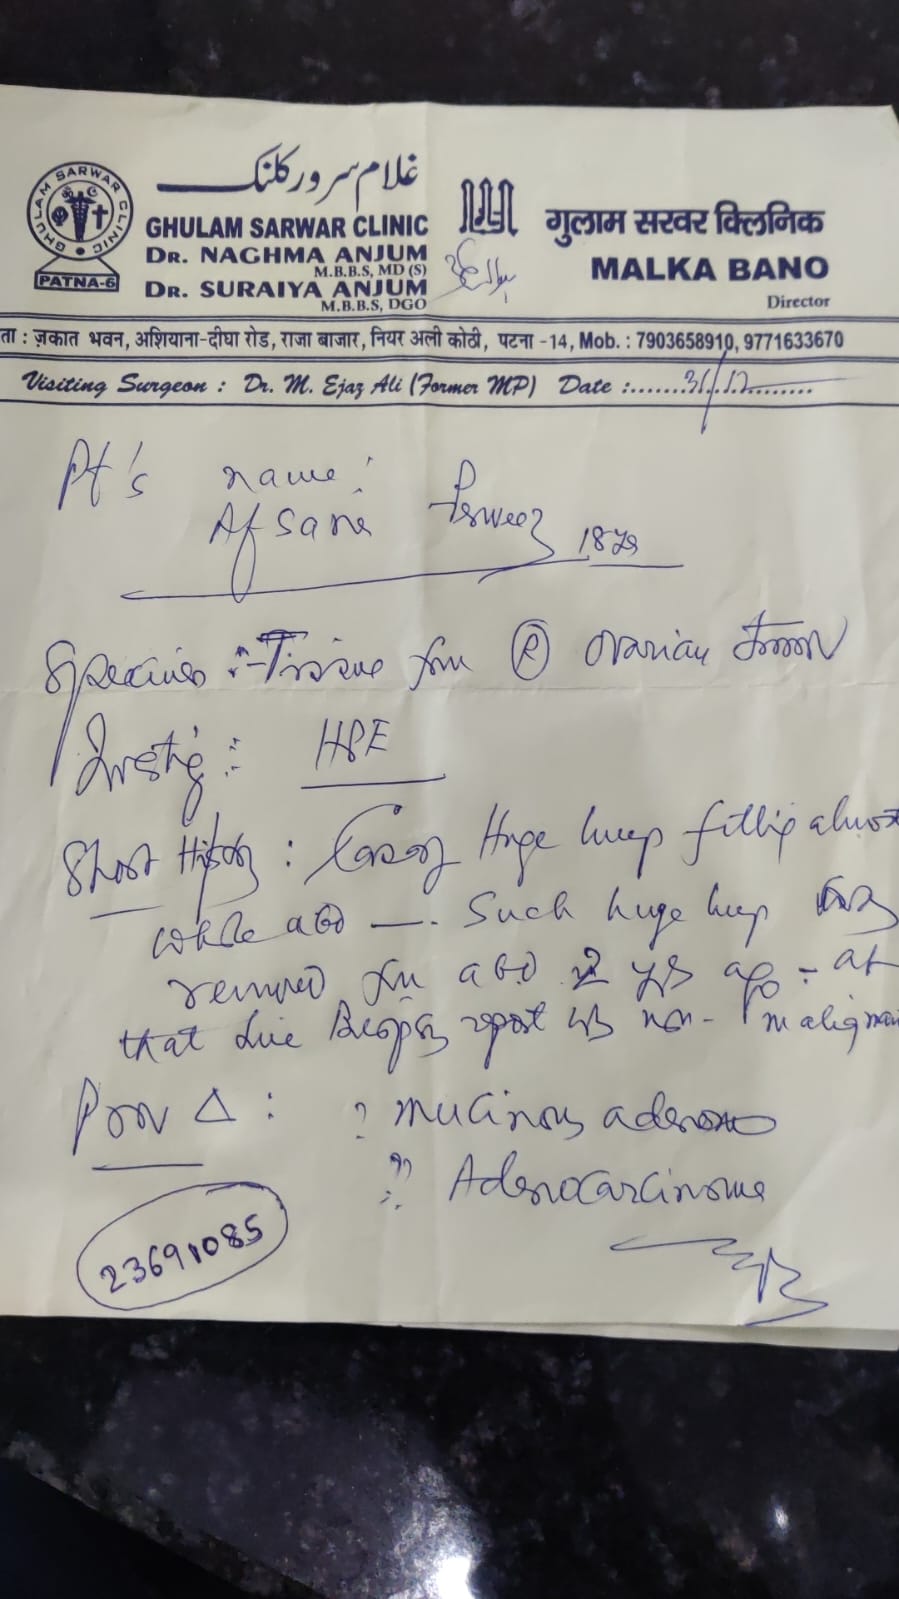 غلام سرور کلنک
GHULAM SARWAR CLINIC
GHULAM SARWAR CLINIC
PATNA-6
DR. NAGHMA ANJUM
M.B.B.S, MD (S)
DR. SURAIYA ANJUM
M.B.B.S, DGO
गुलाम सरवर क्लिनिक
MALKA BANO
Director
ता : ज़कात भवन, अशियाना-दीघा रोड, राजा बाजार, नियर अली कोठी, पटना -14, Mob. : 7903658910, 9771633670
Visiting Surgeon : Dr. M. Ejaz Ali (Former MP) Date :.......31/12............
Pt's name:
Afsana Perweez 18 yrs
Specimen :- Tissue from (R) ovarian tumor
Investig : HPE
Short History : Case of Huge lump filling almost
whole abd —. Such huge lump was
removed from abd 2 yrs ago - at
that time Biopsy report was non-malignan
Prov Δ : ? mucinous adenoma
?? Adenocarcinoma
23691085